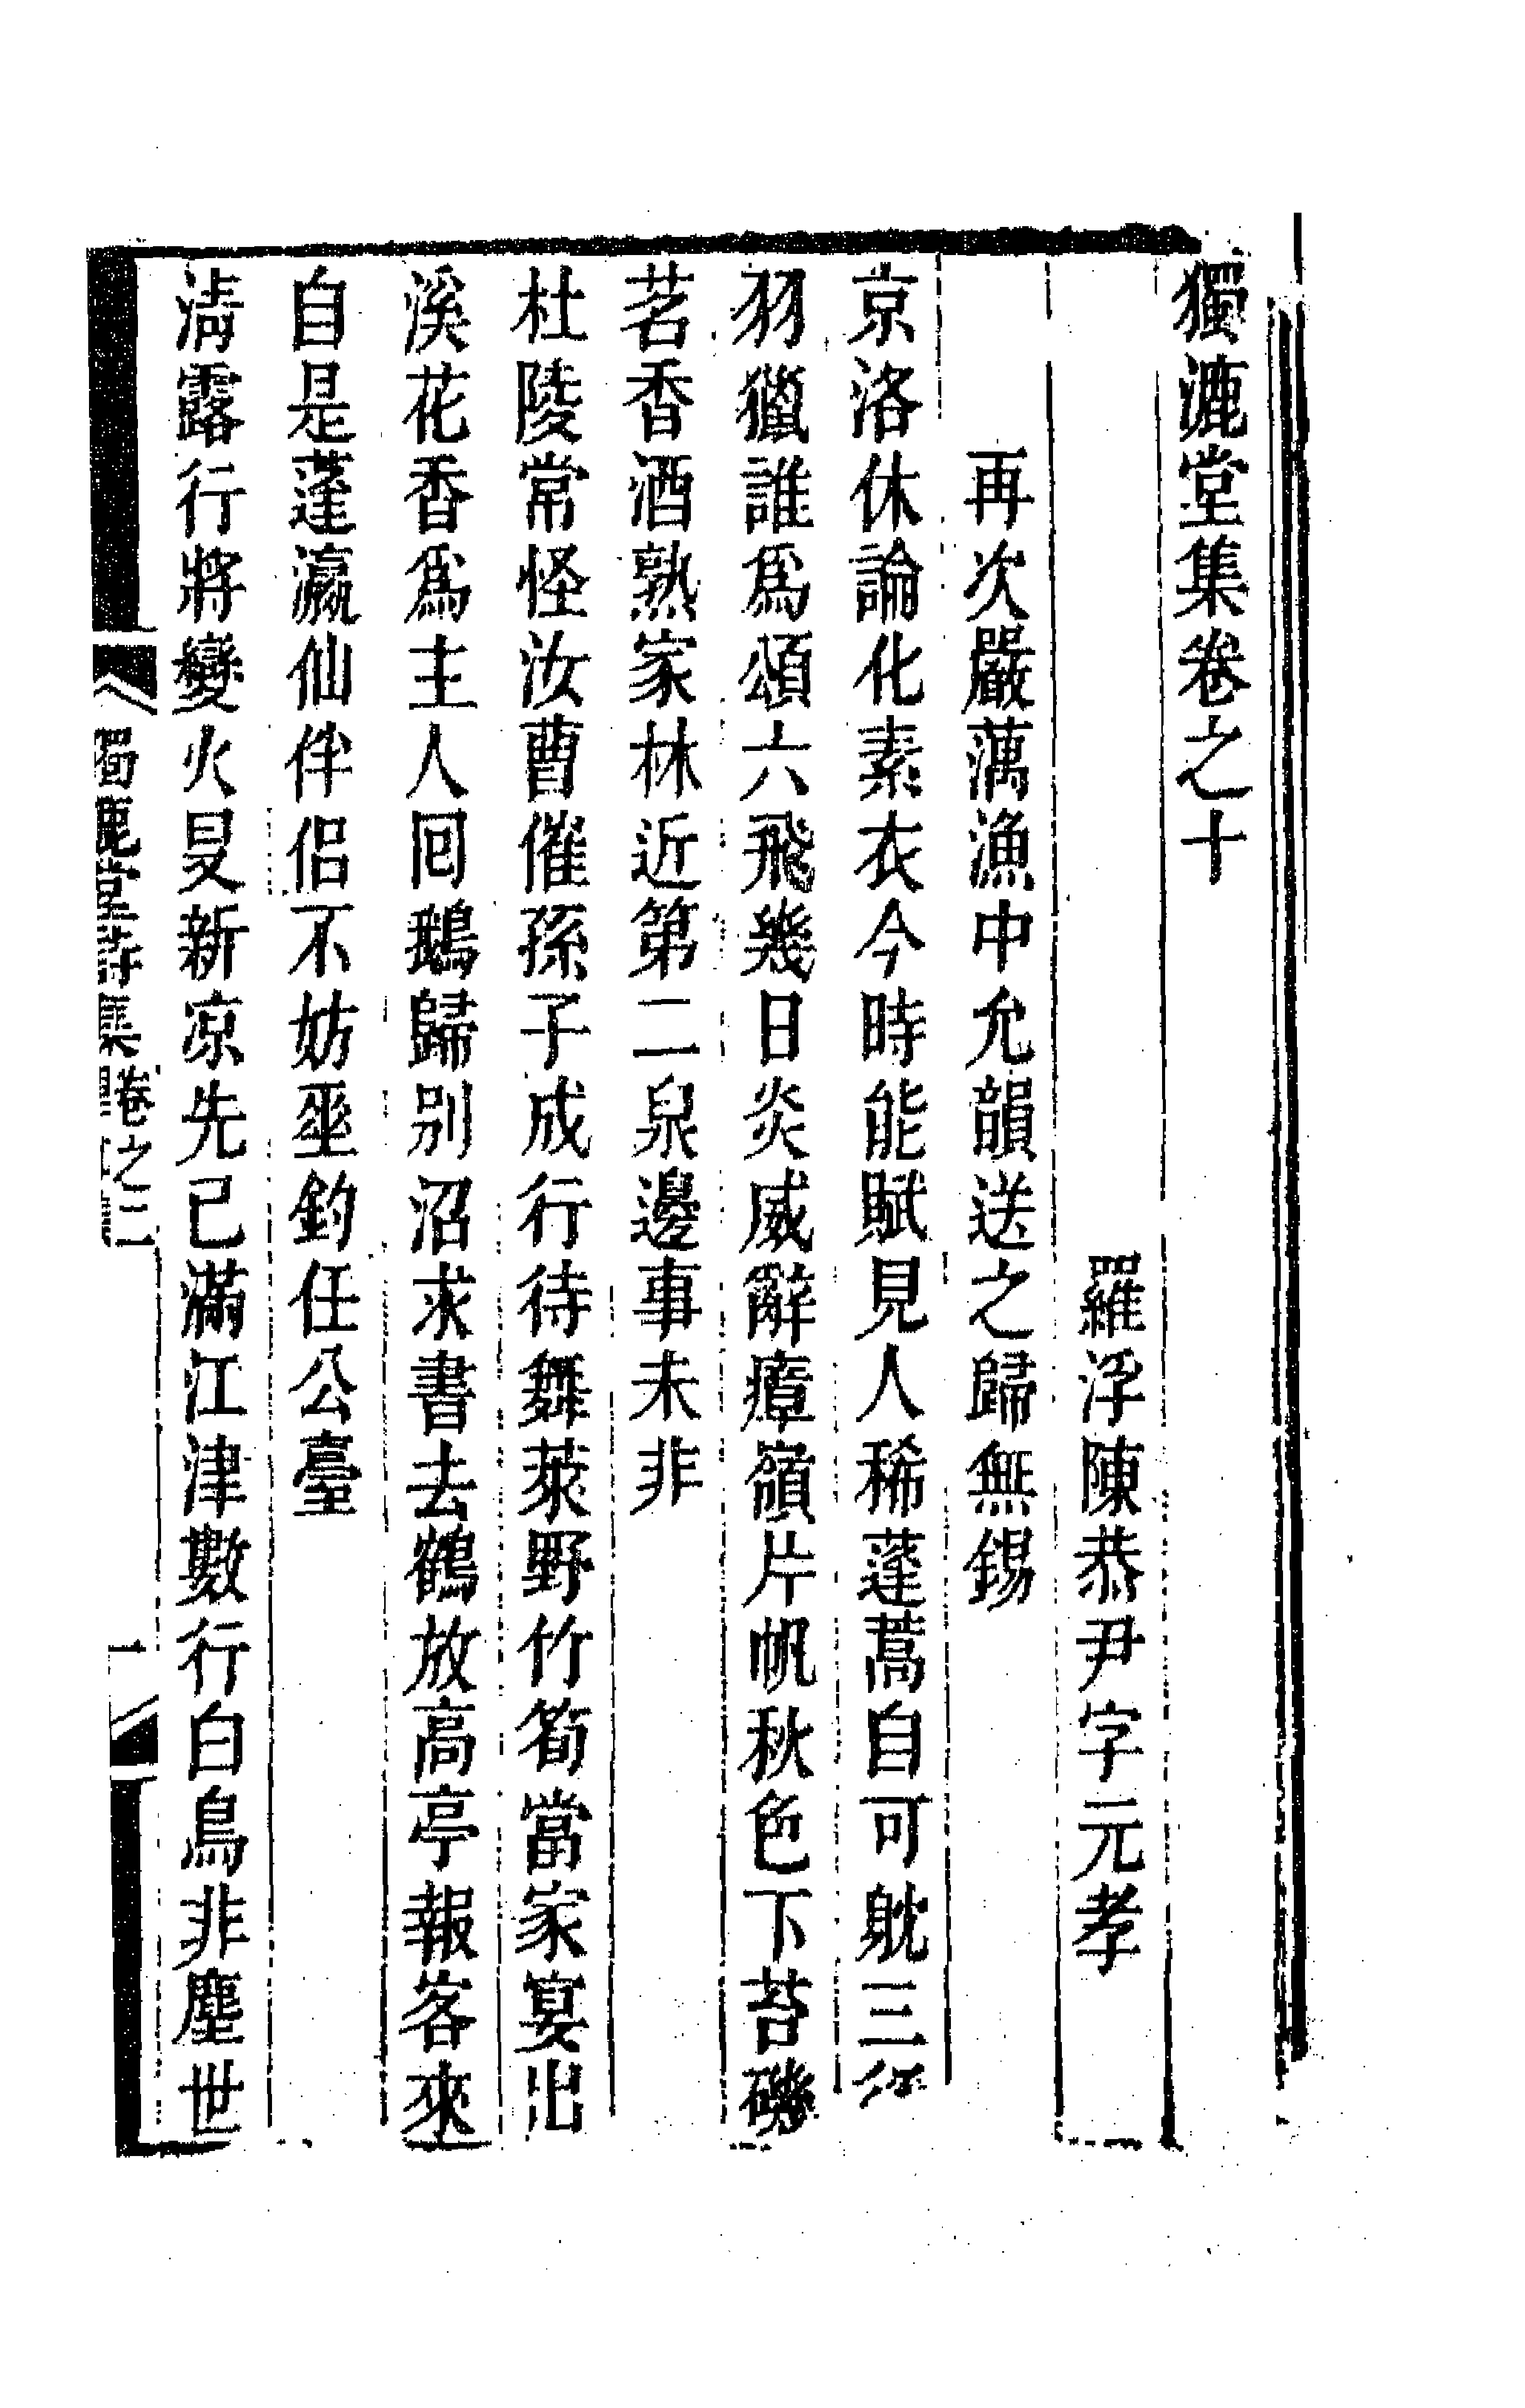 獨漉堂集卷之十
羅浮陳恭尹字元孝
再次嚴藕漁中允韻送之歸無錫
京洛休論化素衣今時能賦見人稀蓬蒿自可躭三徑
羽獵誰爲頌六飛幾日炎威辭瘴嶺片帆秋色下苔磯
茗香酒熟家林近第二泉邊事未非
杜陵常怪汝曹催孫子成行待舞萊野竹筍當家宴出
溪花香爲主人囘鵝歸別沼求書去鶴放高亭報客來
自是蓬瀛仙伴侶不妨坐釣任公臺
淸露行將變火旻新凉先已滿江津數行白鳥非塵世
獨漉堂詩集 卷之 一